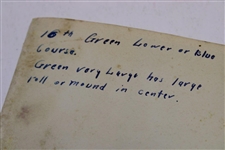 16th Green Lower or Blue
Course.
Green very Large has large
roll or mound in center.